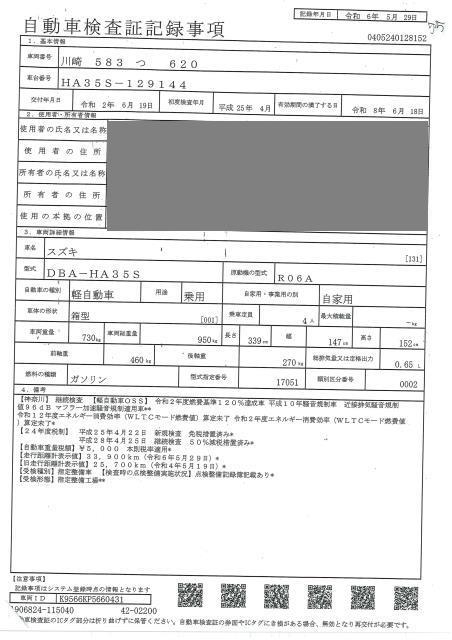 自動車検査証記録事項
記録年月日 令和 6年 5月 29日
0405240128152
1．基本情報
車両番号 川崎 583 つ 620
車台番号 HA35S－129144
交付年月日 令和 2年 6月 19日 初度検査年月 平成 25年 4月 有効期間の満了する日 令和 8年 6月 18日
2．使用者・所有者情報
使用者の氏名又は名称
使用者の住所
所有者の氏名又は名称
所有者の住所
使用の本拠の位置
3．車両詳細情報
車名 スズキ [131]
型式 DBA－HA35S 原動機の型式 R06A
自動車の種別 軽自動車 用途 乗用 自家用・事業用の別 自家用
車体の形状 箱型 [001] 乗車定員 4人 最大積載量 －kg
車両重量 730kg 車両総重量 950kg 長さ 339cm 幅 147cm 高さ 152cm
前軸重 460kg 後軸重 270kg 総排気量又は定格出力 0.65 L
燃料の種類 ガソリン 型式指定番号 17051 類別区分番号 0002
4．備考
【神奈川】 継続検査 【軽自動車OSS】 令和２年度燃費基準１２０％達成車 平成１０年騒音規制車 近接排気騒音規制
値９６ｄＢ マフラー加速騒音規制適用車**
令和１２年度エネルギー消費効率（ＷＬＴＣモード燃費値）算定未了 令和２年度エネルギー消費効率（ＷＬＴＣモード燃費値
）算定未了*
【２４年度税制】 平成２５年４月２２日 新規検査 免税措置済み*
平成２８年４月２５日 継続検査 ５０％減税措置済み*
【自動車重量税額】￥５，０００ 本則税率適用*
【走行距離計表示値】３３，９００ｋｍ（令和６年５月２９日）*
【旧走行距離計表示値】２５，７００ｋｍ（令和４年５月１９日）*
【受検種別】指定整備車 【検査時の点検整備実施状況】点検整備記録簿記載あり*
【受検形態】指定整備工場**
【注意事項】
記録事項はシステム登録時点の情報となります
車両ID K9566KP5660431
906824-115040 42-02200
車検査証のICタグ部分は折り曲げずに保管ください。自動車検査証の券面やICタグにき損がある場合、無効となり再交付が必要です。